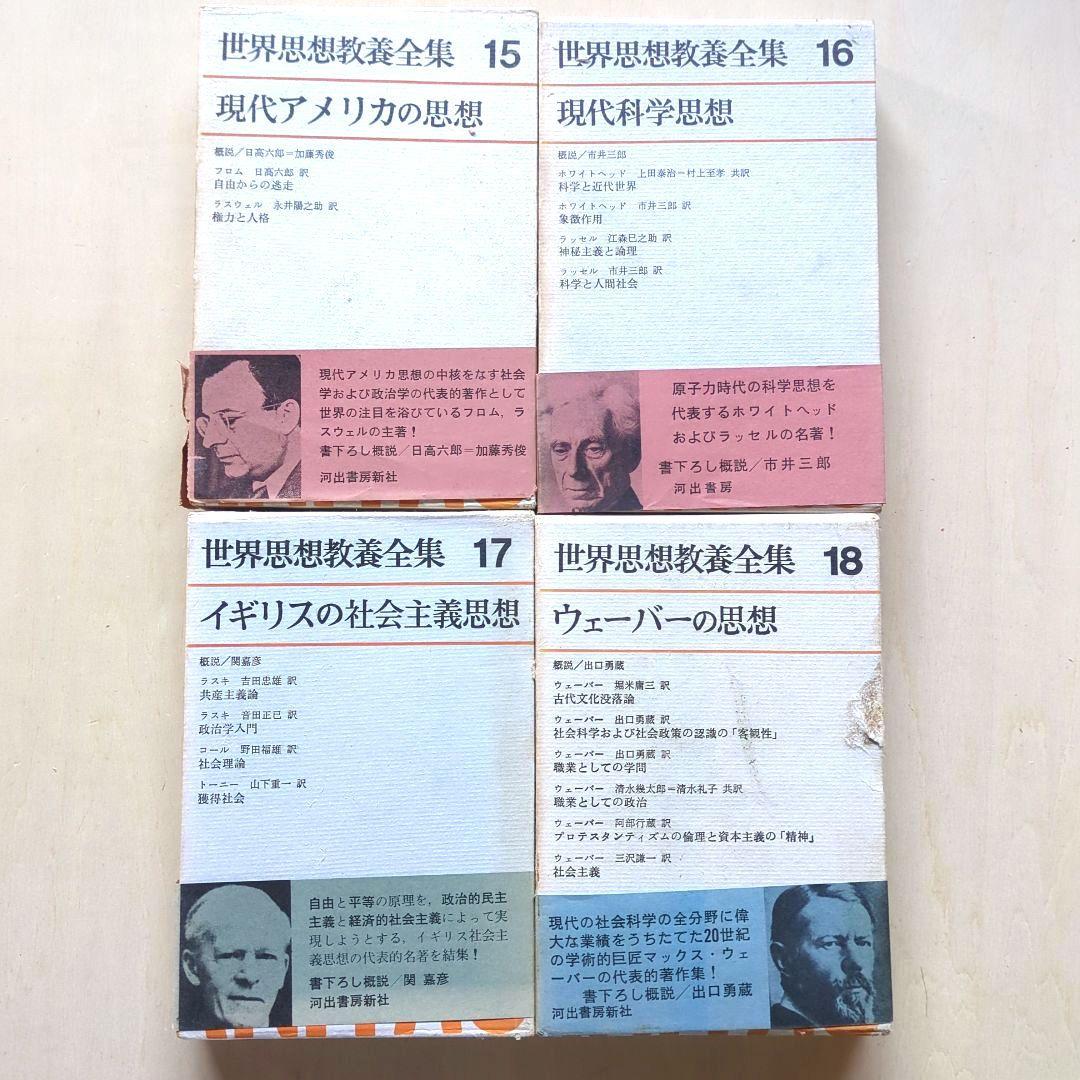 世界思想教養全集 15
現代アメリカの思想
概説／日高六郎＝加藤秀俊
フロム 日高六郎 訳
自由からの逃走
ラスウェル 永井陽之助 訳
権力と人格
現代アメリカ思想の中核をなす社会
学および政治学の代表的著作として
世界の注目を浴びているフロム，ラ
スウェルの主著！
書下ろし概説／日高六郎＝加藤秀俊
河出書房新社
世界思想教養全集 16
現代科学思想
概説／市井三郎
ホワイトヘッド 上田泰治＝村上至孝 共訳
科学と近代世界
ホワイトヘッド 市井三郎 訳
象徴作用
ラッセル 江森巳之助 訳
神秘主義と論理
ラッセル 市井三郎 訳
科学と人間社会
原子力時代の科学思想を
代表するホワイトヘッド
およびラッセルの名著！
書下ろし概説／市井三郎
河出書房
世界思想教養全集 17
イギリスの社会主義思想
概説／関嘉彦
ラスキ 吉田忠雄 訳
共産主義論
ラスキ 音田正巳 訳
政治学入門
コール 野田福雄 訳
社会理論
トーニー 山下重一 訳
獲得社会
自由と平等の原理を，政治的民主
主義と経済的社会主義によって実
現しようとする，イギリス社会主
義思想の代表的名著を結集！
書下ろし概説／関 嘉彦
河出書房新社
世界思想教養全集 18
ウェーバーの思想
概説／出口勇蔵
ウェーバー 堀米庸三 訳
古代文化没落論
ウェーバー 出口勇蔵 訳
社会科学および社会政策の認識の「客観性」
ウェーバー 出口勇蔵 訳
職業としての学問
ウェーバー 清水幾太郎＝清水礼子 共訳
職業としての政治
ウェーバー 阿部行蔵 訳
プロテスタンティズムの倫理と資本主義の「精神」
ウェーバー 三沢謙一 訳
社会主義
現代の社会科学の全分野に偉
大な業績をうちたてた20世紀
の学術的巨匠マックス・ウェ
ーバーの代表的著作集！
書下ろし概説／出口勇蔵
河出書房新社